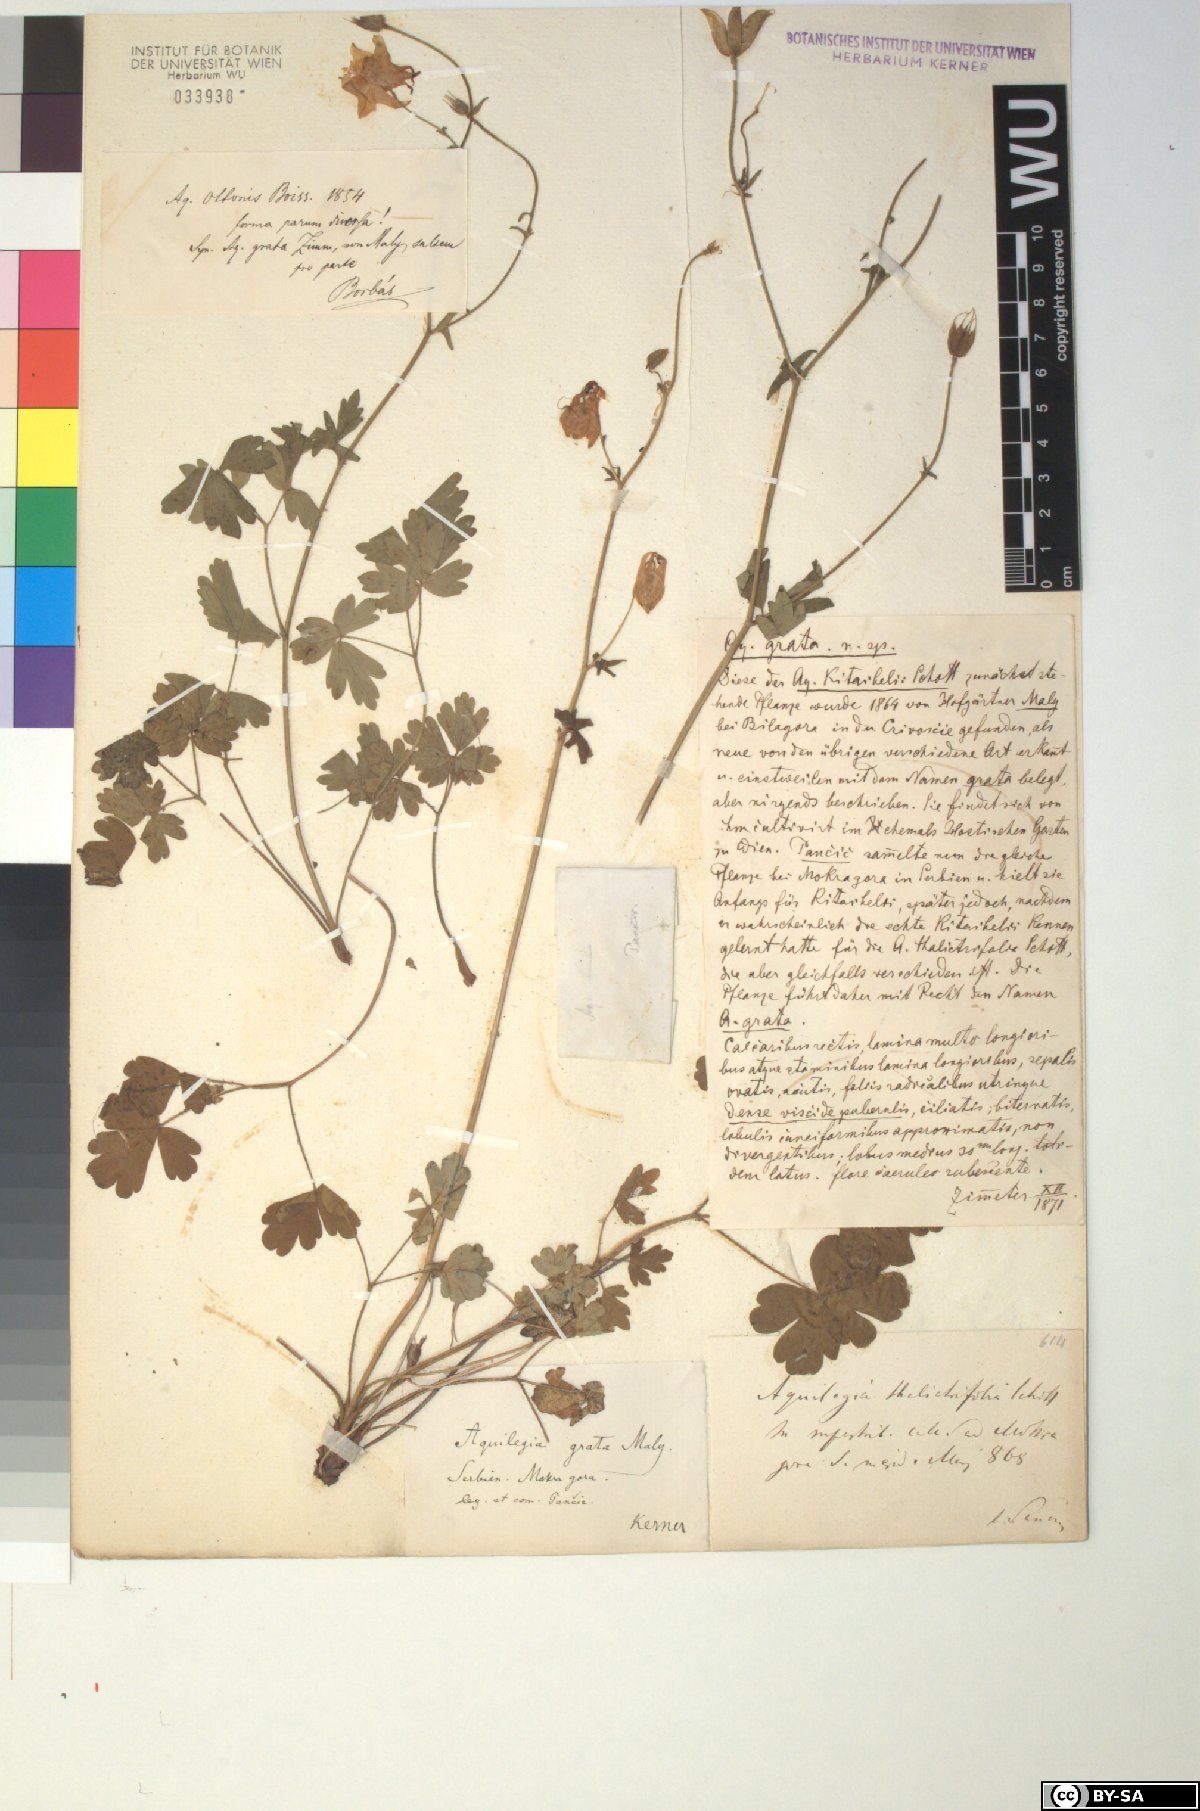 INSTITUT FÜR BOTANIK
DER UNIVERSITÄT WIEN
Herbarium WU
033938
BOTANISCHES INSTITUT DER UNIVERSITÄT WIEN
HERBARIUM KERNER
Aq. Ottonis Boiss. 1854
forma parum diversa!
Syn. Aq. grata Zimm, non Maly, saltem
pro parte
Borbás
WU
copyright reserved
0 1 2 3 4 5 6 7 8 9 10
cm
Aq. grata. n. sp.
Diese der Aq. Kitaibelii Schott zunächst ste-
hende Pflanze wurde 1864 von Hofgärtner Maly
bei Bilagora in der Crivoscie gefunden, als
neue von den übrigen verschiedene Art erkant
u. einstweilen mit dem Namen grata belegt,
aber nirgends beschrieben. Sie findet sich von
ihm cultivirt im ehemals Hostischen Garten
zu Wien. Pančić sam̄elte nun die gleiche
Pflanze bei Mokragora in Serbien u. hielt sie
Anfangs für Kitaibelii, später jedoch, nachdem
er wahrscheinlich die echte Kitaibelii kennen
gelernt hatte für die A. thalictrifolia Schott,
die aber gleichfalls verschieden ist. Die
Pflanze führt daher mit Recht den Namen
A. grata.
Calcaribus rectis, lamina multo longiori-
bus atque staminibus lamina longioribus, sepalis
ovatis, acutis, foliis radicalibus utrinque
dense viscide puberulis, ciliatis, biternatis,
lobulis cuneiformibus approximatis, non
divergentibus; lobus medius 30 mm long. toti-
dem latus. flore caeruleo rubescente.
Zim̄eter XII
1871.
Aq.
Pančic.
614
Aquilegia thalictrifolia Schott
In
gora Maj 868
Aquilegia grata Maly.
Serbien. Mokra gora.
leg. et com. Pančic.
Kerner
cc BY-SA